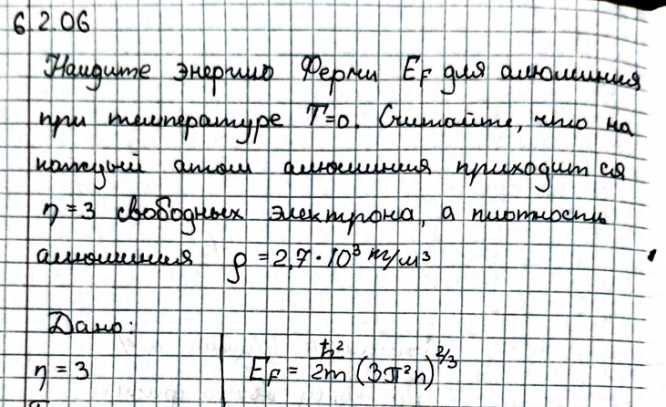 6.2.06
Найдите энергию Ферми E_F для алюминия
при температуре T=0. Считайте, что на
каждый атом алюминия приходится
η=3 свободных электрона, а плотность
алюминия ρ = 2,7·10³ кг/м³
Дано:
η = 3
E_F = ħ²/2m (3π²n)^2/3